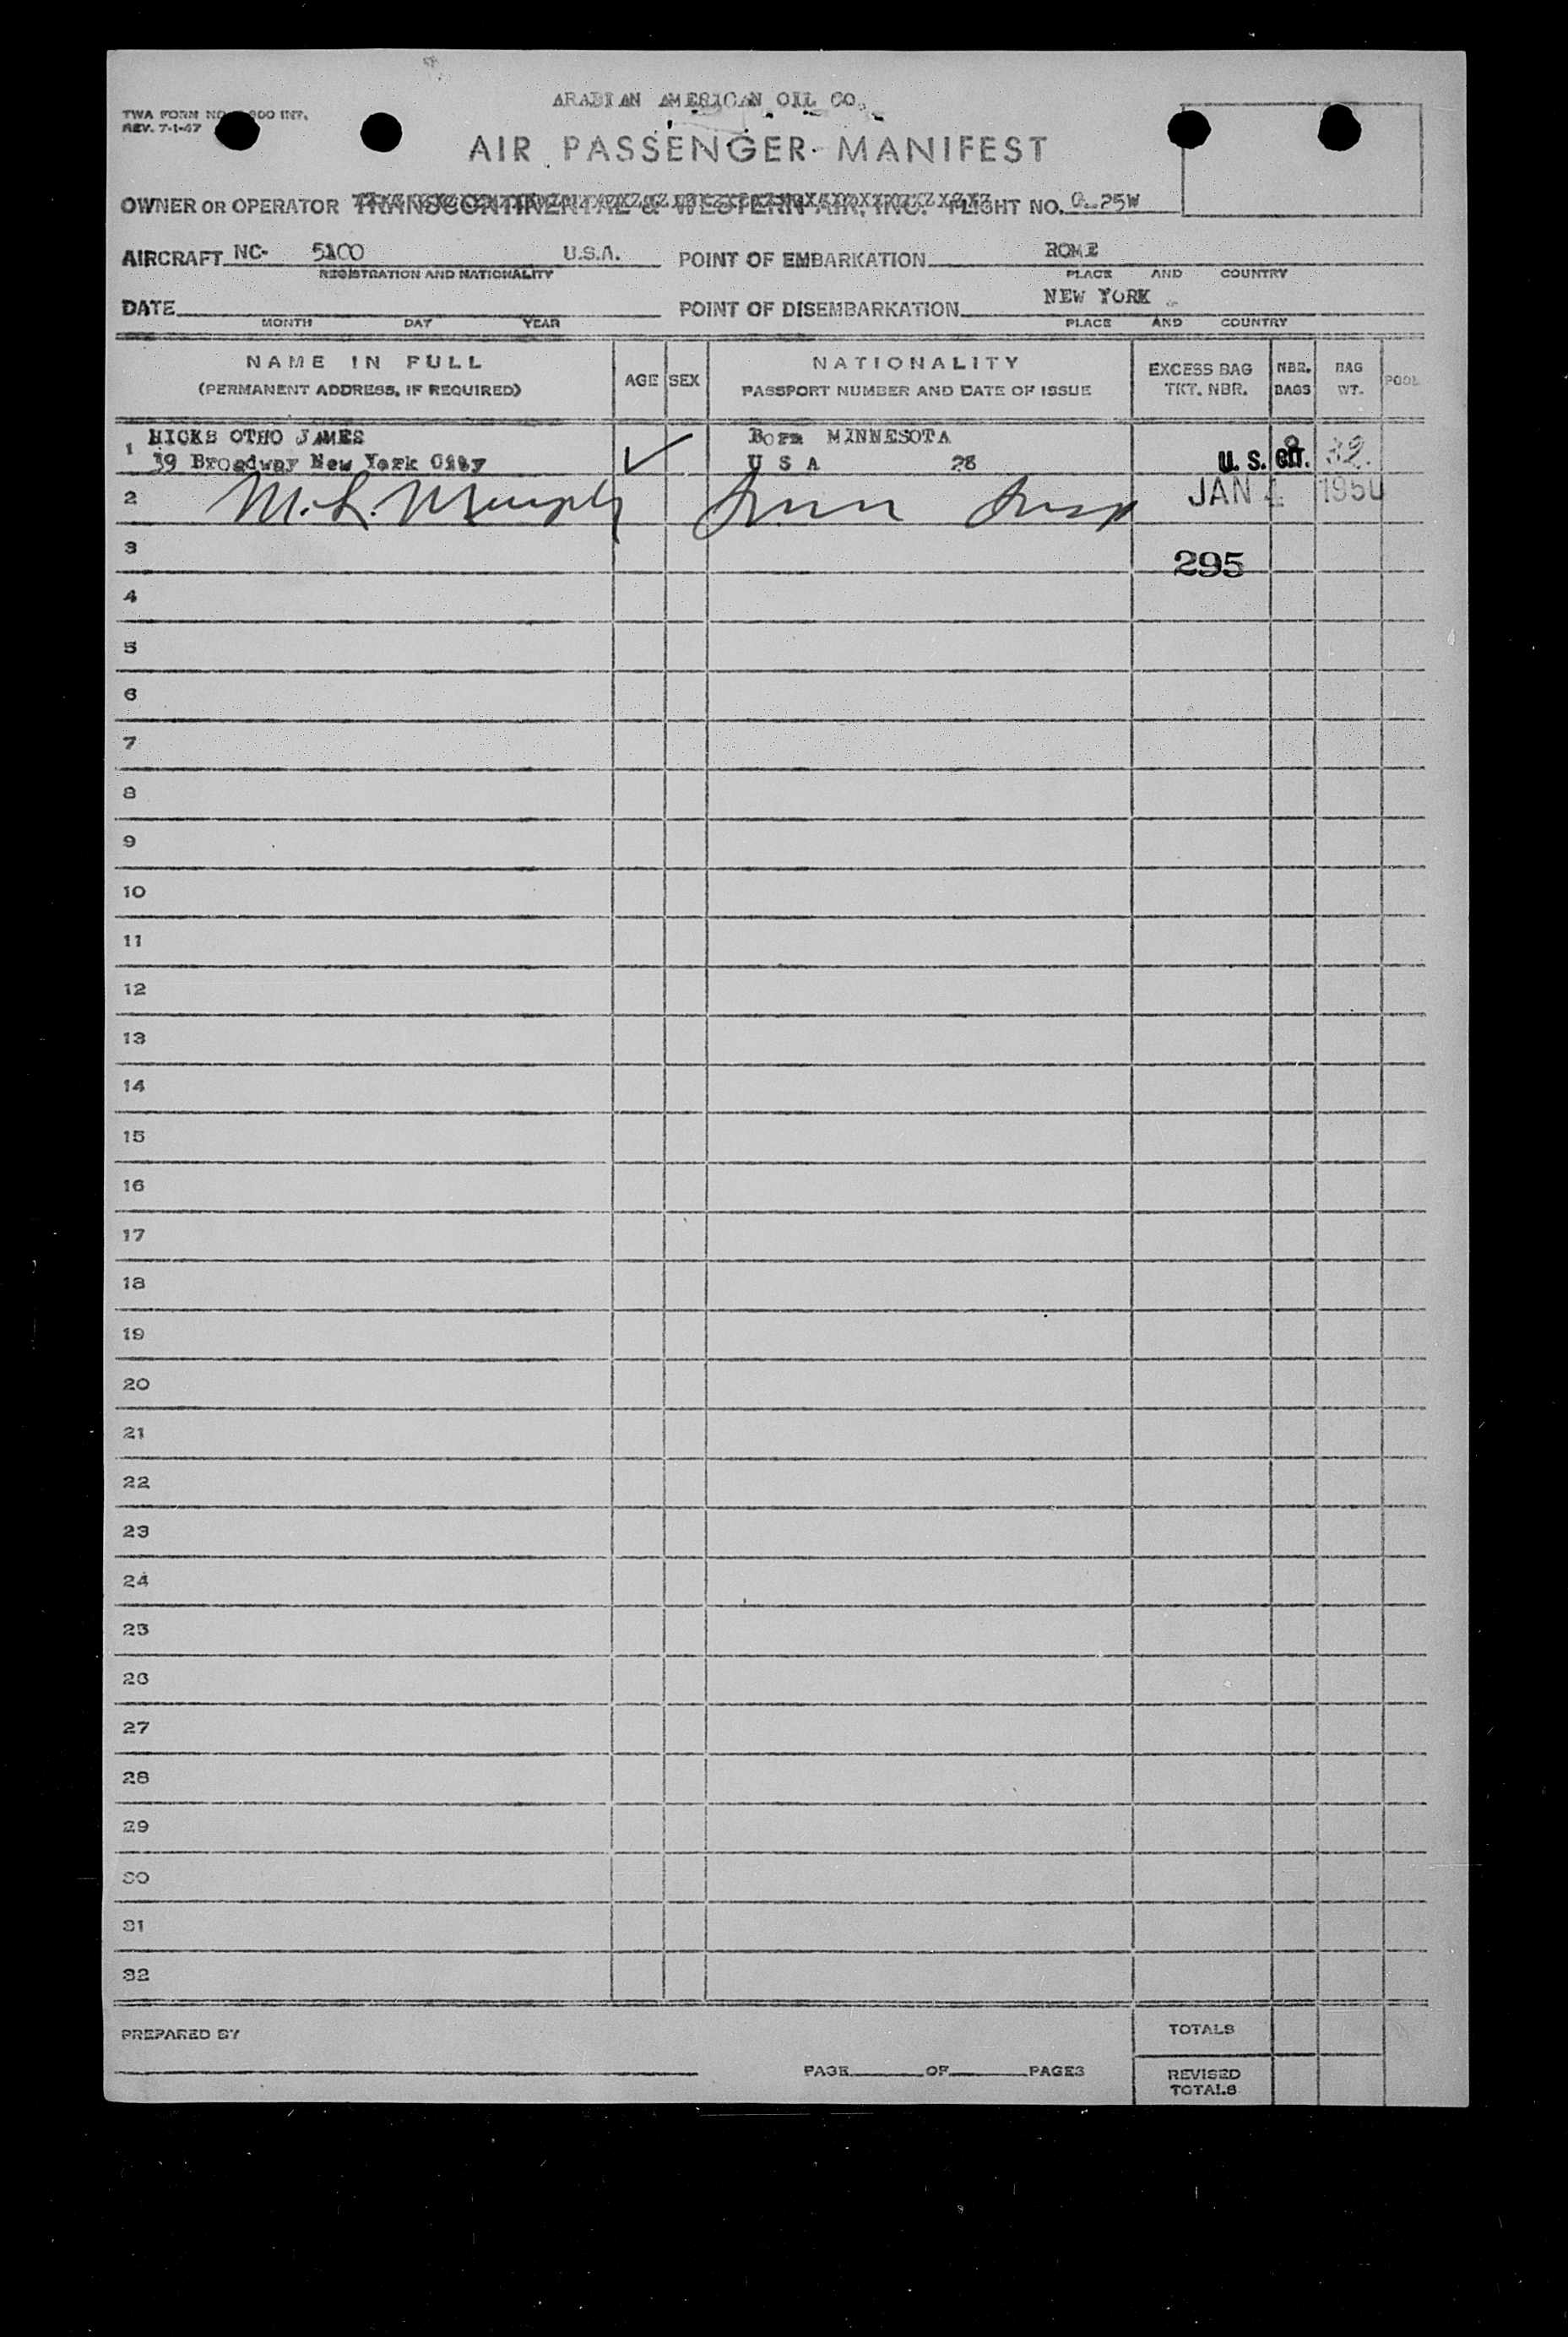 ARABIAN AMERICAN OIL CO.
TWA FORM NO. 800 INT.
REV. 7-1-47
AIR PASSENGER MANIFEST
OWNER OR OPERATOR TRANSCONTINENTAL & WESTERN AIR, INC. FLIGHT NO. 25W
AIRCRAFT NC- 5100 U.S.A. POINT OF EMBARKATION ROME
REGISTRATION AND NATIONALITY PLACE AND COUNTRY
DATE POINT OF DISEMBARKATION NEW YORK
MONTH DAY YEAR PLACE AND COUNTRY
NAME IN FULL AGE SEX NATIONALITY EXCESS BAG NBR. BAG POOL
(PERMANENT ADDRESS, IF REQUIRED) PASSPORT NUMBER AND DATE OF ISSUE TKT. NBR. BAGS WT.
1 HICKS OTHO JAMES Born MINNESOTA
39 Broadway New York City ✓ U S A 28 U. S. CIT. 32.
2 JAN 4 1950
3 295
4
5
6
7
8
9
10
11
12
13
14
15
16
17
18
19
20
21
22
23
24
25
26
27
28
29
30
31
32
PREPARED BY TOTALS
PAGE OF PAGES REVISED
TOTALS